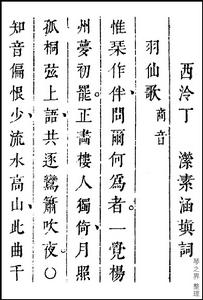 西泠丁 濚素涵填詞
羽仙歌 商音
惟琹作伴問爾何為者。一覺楊
州夢初罷。正畵樓人獨倚月照
孤桐弦上語共逐鸞簫吹夜〇
知音偏恨少。流水高山此曲千
琴之界 整理